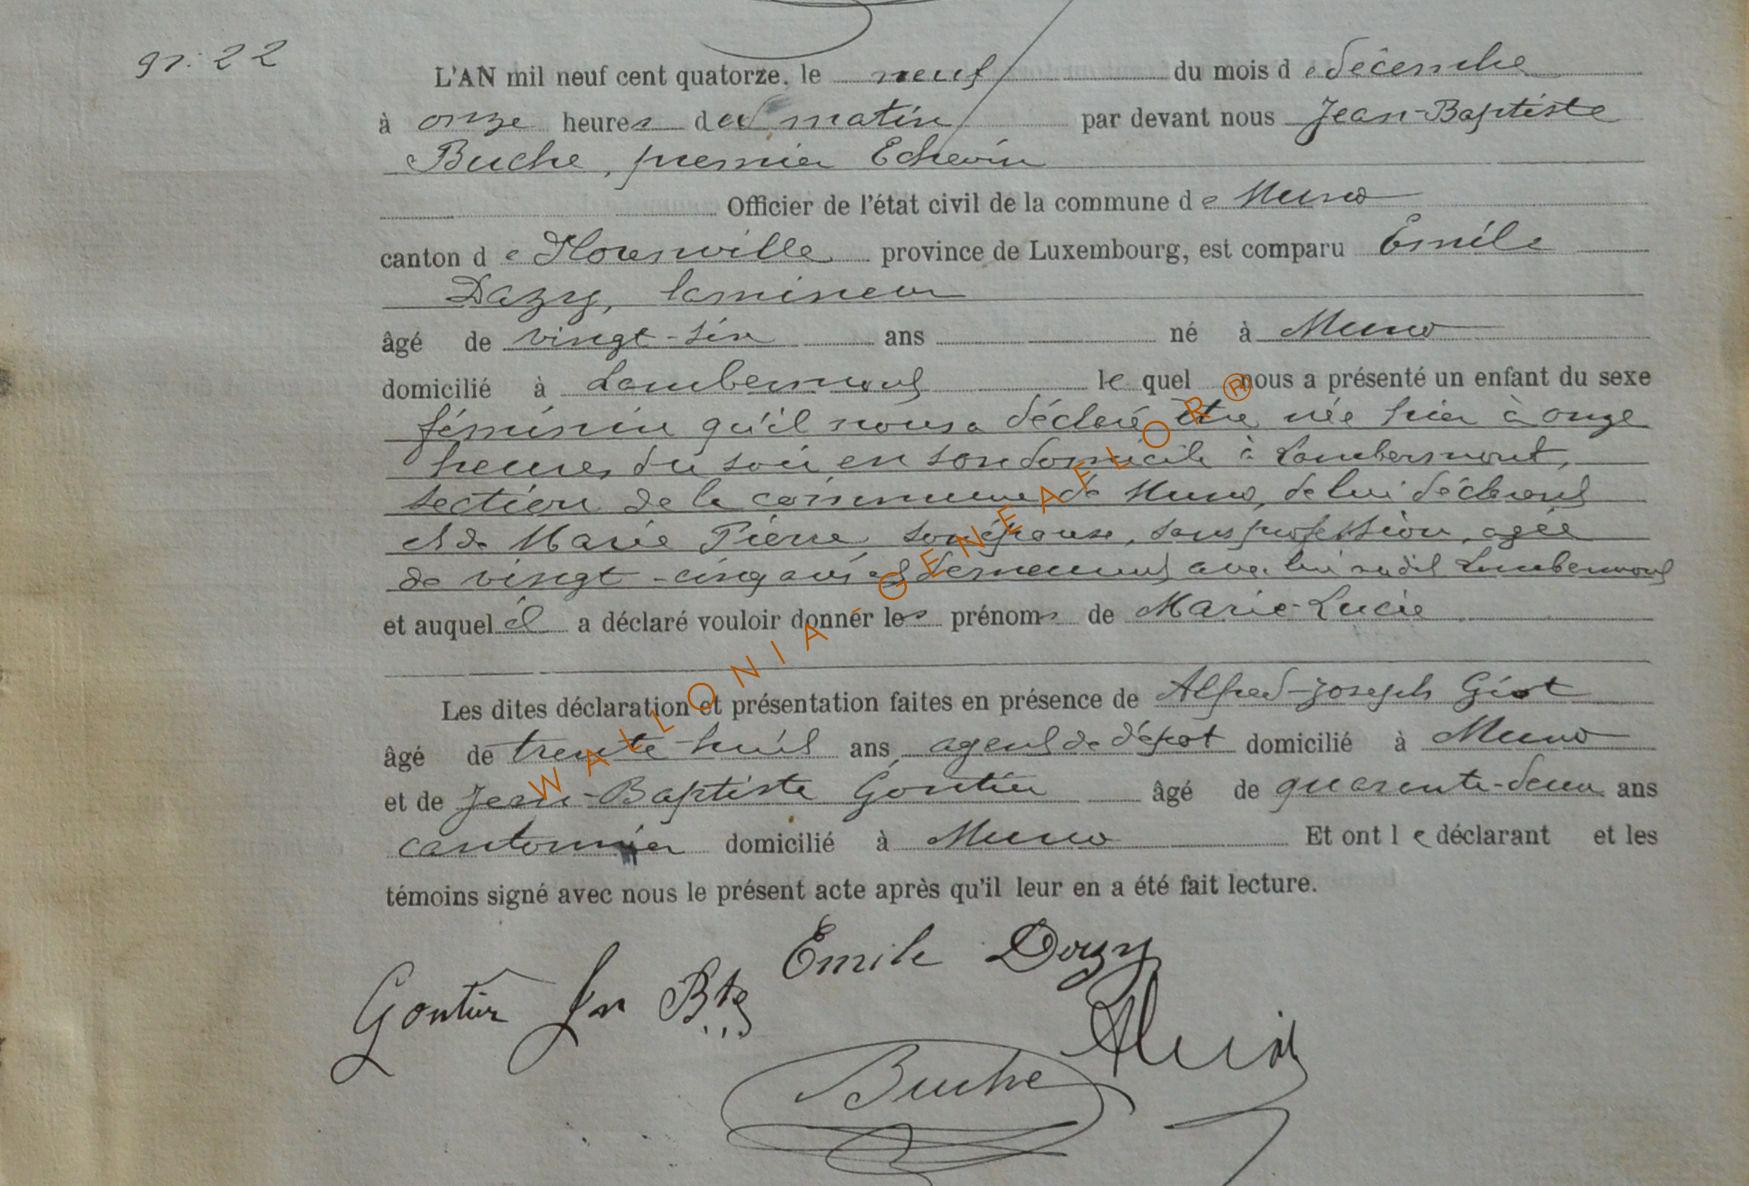 n: 22
L'AN mil neuf cent quatorze, le neuf du mois de décembre
à onze heures du matin par devant nous Jean-Baptiste
Buche, premier Echevin
Officier de l'état civil de la commune de Muno
canton de Florenville province de Luxembourg, est comparu Emile
Dazy, lamineur
âgé de vingt-six ans né à Muno
domicilié à Lambermont lequel nous a présenté un enfant du sexe
féminin qu'il nous a déclaré être née hier à onze
heures du soir en son domicile à Lambermont,
section de la commune de Muno, de lui déclarant
et de Marie Pierre, son épouse, sans profession, agée
de vingt-cinq ans et demeurant avec lui audit Lambermont
et auquel il a déclaré vouloir donner les prénoms de Marie-Lucie
Les dites déclaration et présentation faites en présence de Alfred-Joseph Giot
âgé de trente-huit ans, agent de dépôt domicilié à Muno
et de Jean-Baptiste Gontier âgé de quarante-deux ans
cantonnier domicilié à Muno Et ont le déclarant et les
témoins signé avec nous le présent acte après qu'il leur en a été fait lecture.
Emile Dazy
Gontier Jn Bte
Buche
WALLONIA GENEAFLOR®